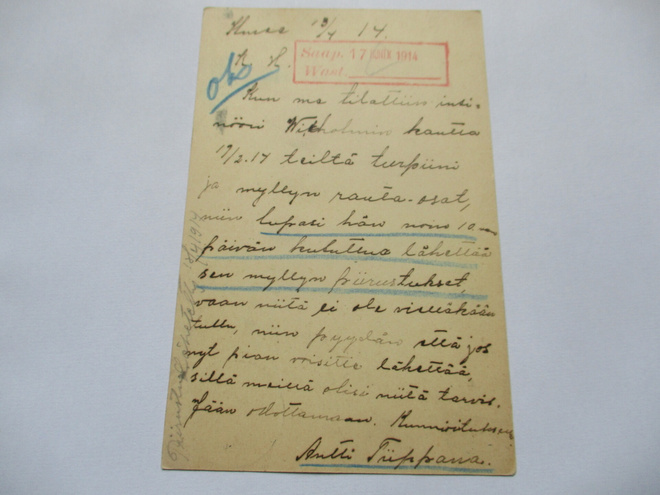 14.
Saap. 17 1914
Wast.
K H.
Kun me tilattiin insi-
nööri kautta
teiltä turpiini
ja myllyn rauta-osat,
niin lupasi hän noin 10
päivän kuluttua lähettää
sen myllyn piirustukset,
vaan niitä ei ole vieläkään
tullu, niin pyydän että jos
nyt pian voisitte lähettää,
sillä meillä olisi niitä tarvis.
Jään odottamaan.
Antti Tiippana.